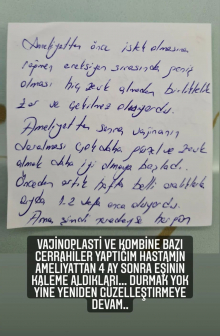 Ameliyattan önce istek olmasına
rağmen sırasında geniş
olması hiç zevk almadan birliktelik
zor ve çekilmez oluyordu.
Ameliyattan sonra vajinanın
daralması çok daha güzel ve zevk
almak daha iyi olmaya başladı.
Önceden artık hafta belli aralıklarla
ayda 1.2 defa oluyordu.
Ama şimdi neredeyse her gün
VAJİNOPLASTİ VE KOMBİNE BAZI
CERRAHİLER YAPTIĞIM HASTAMIN
AMELİYATTAN 4 AY SONRA EŞİNİN
KALEME ALDIKLARI... DURMAK YOK
YİNE YENİDEN GÜZELLEŞTİRMEYE
DEVAM..